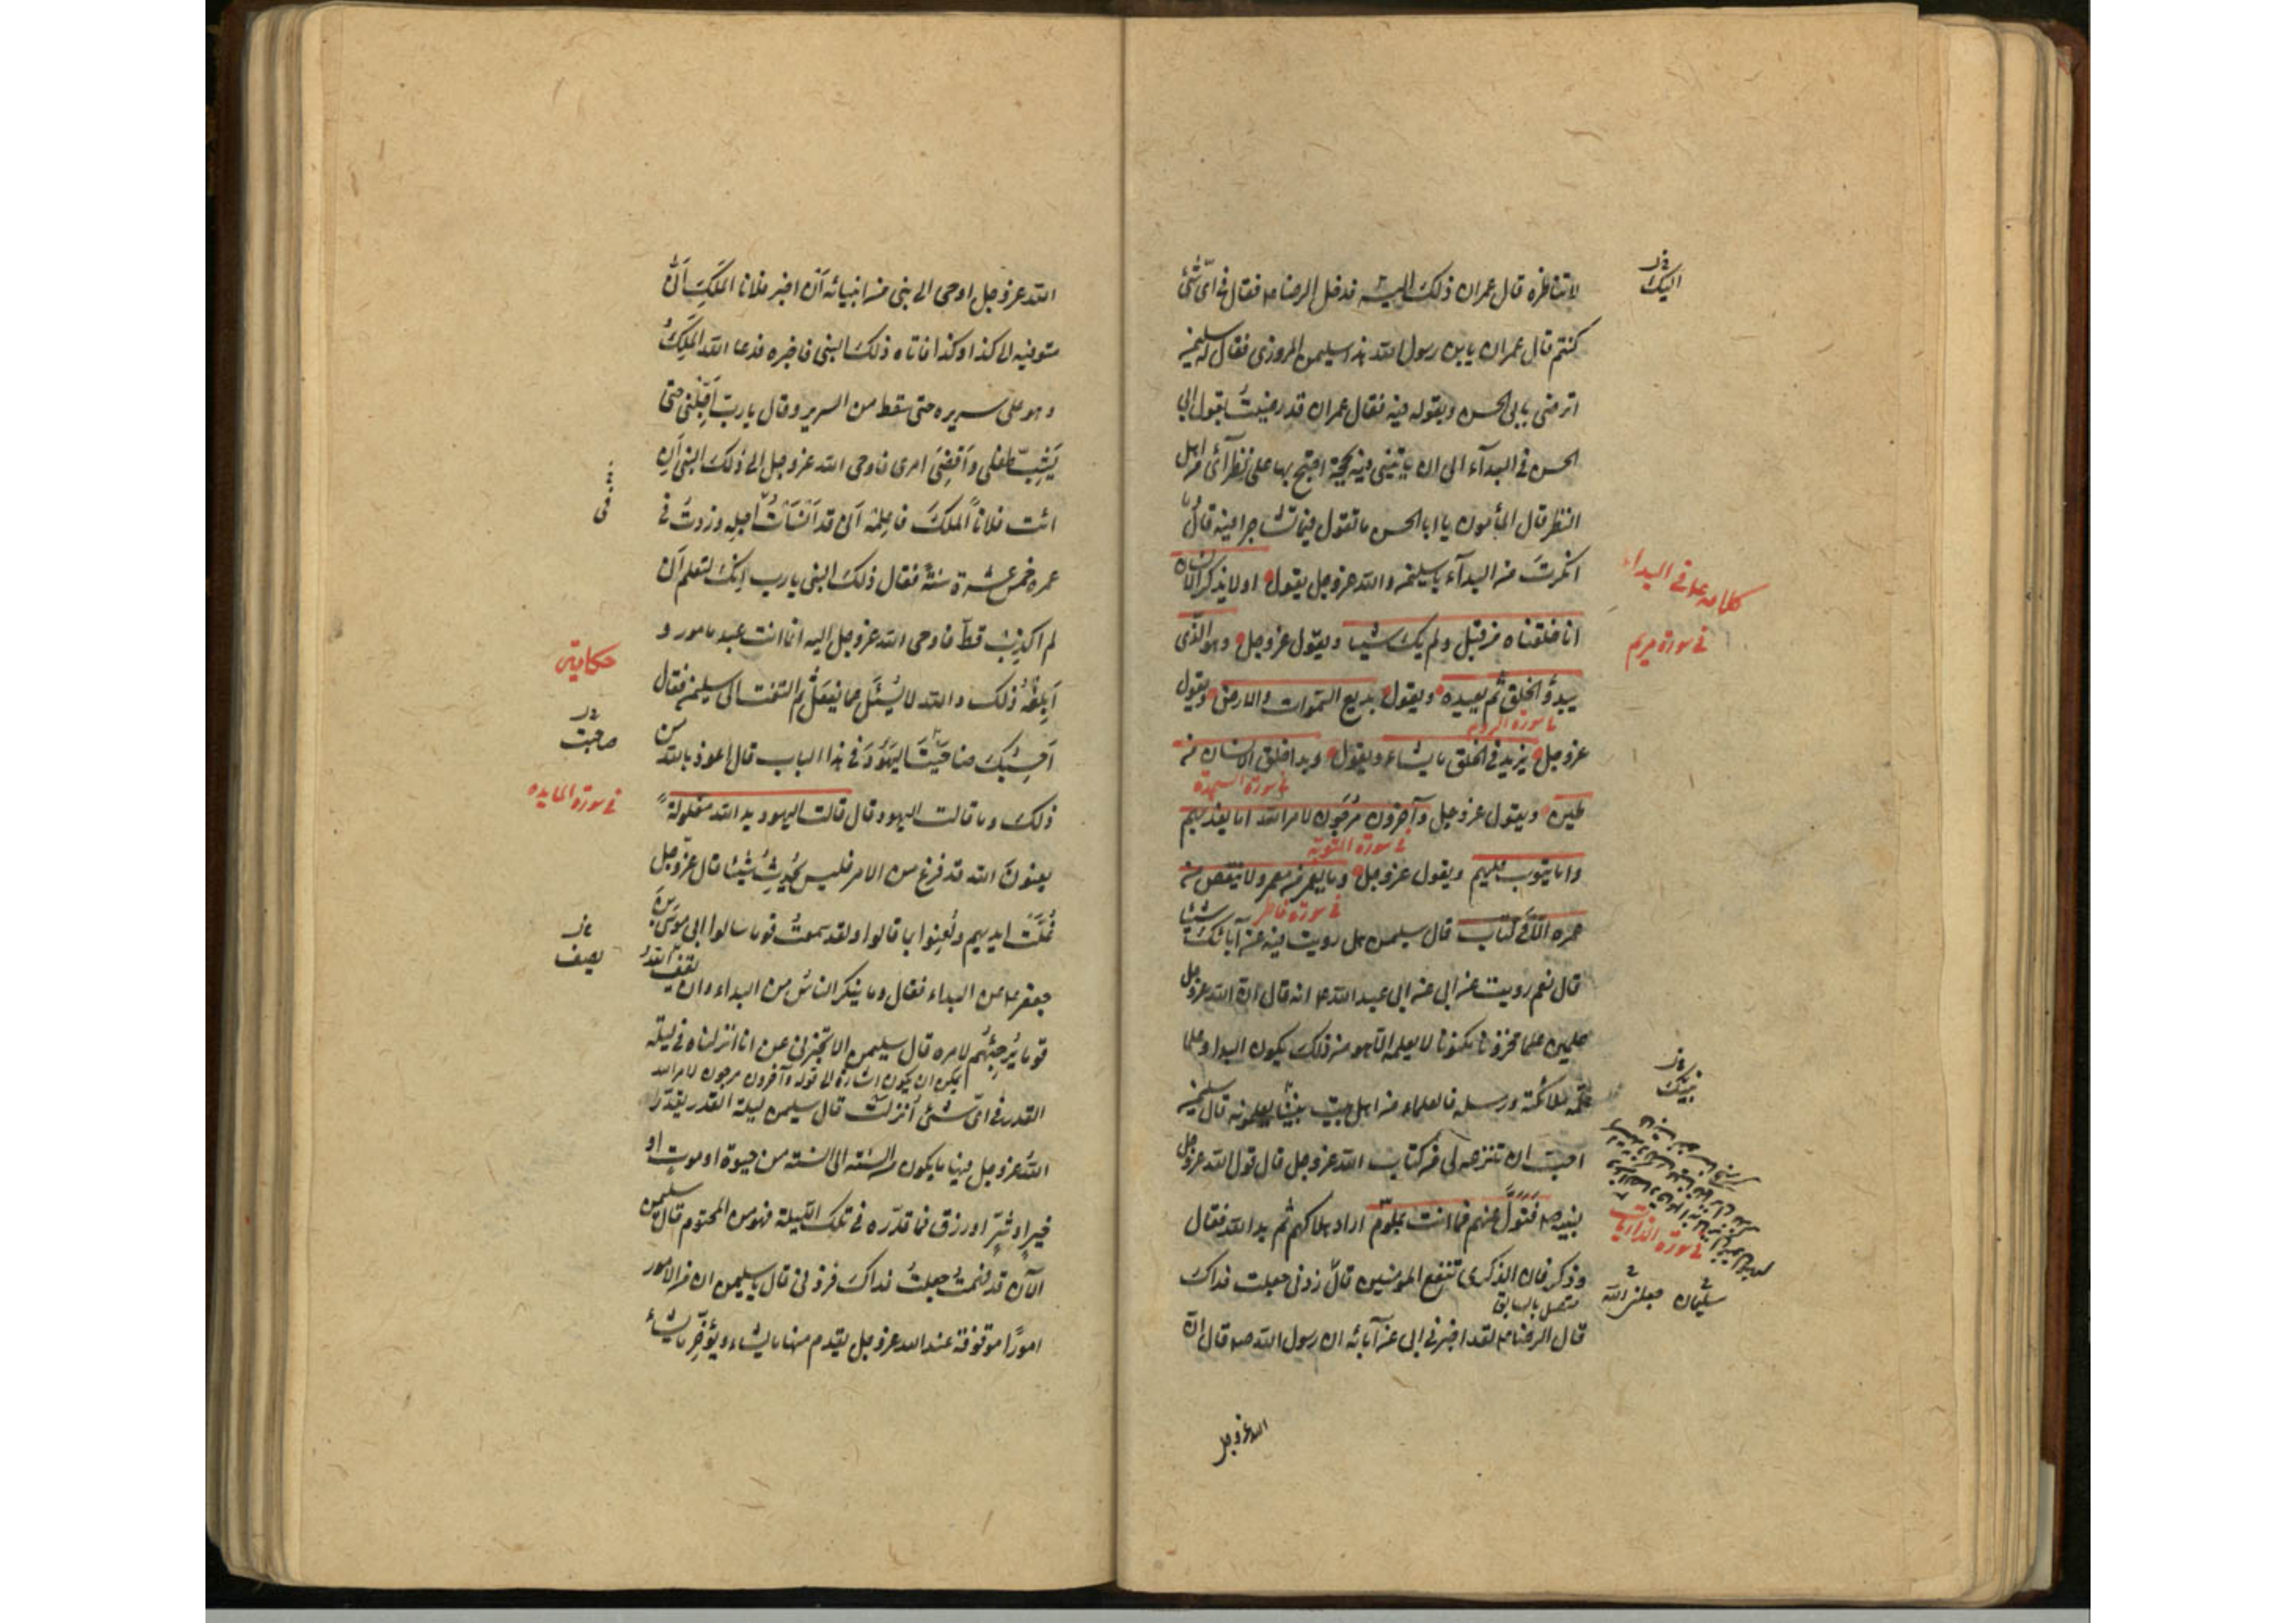 لا تناظره قال عمران ذلك اليه فدخل الرضا ع فقال فى اىّ شئ
كنتم قال عمران يا بن رسول الله هذا سليمن المروزى فقال له سليمن
اترضى بابى الحسن وبقوله فيه فقال عمران قد رضيتُ بقول ابى
الحسن فى البدآء الى ان ياتينى فيه بحجة احتج بها على نظرآئى من اهل
النظر قال المأمون يا ابا الحسن ما تقول فيما تشاجرا فيه قال وما
انكرتَ من البدآء يا سليمن والله عزوجل يقول اولا يذكر الانسان
انا خلقناه من قبل ولم يك شيئا ويقول عزوجل وهو الّذى
يبدؤ الخلق ثم يعيده ويقول بديع السموات والارض ويقول
عزوجل يزيد فى الخلق ما يشاء ويقول وبدا خلق الانسان من
طين ويقول عزوجل وآخرون مُرجَون لامر الله اما يعذبهم
واما يتوب عليهم ويقول عزوجل وما يعمر من معمر ولا ينقص من
عمره الّا فى كتاب قال سليمن هل رويت فيه عن آبائك شيئا
قال نعم رويت عن ابى عن ابى عبد الله ع انه قال انّ الله عزوجل
علمين علما مخزونا مكنونا لا يعلمه الّا هو من ذلك يكون البدا وعلما
علّمه ملائكته ورسله فالعلماء من اهل بيت نبيّنا يعلمونه قال سليمن
احبّ ان تنزعه لى من كتاب الله عزوجل قال قول الله عزوجل
لنبيه ص فَتَوَلَّ عنهم فما انت بملوم اراد هلاكهم ثم بدا لله فقال
وذكر فان الذكرى تنفع المومنين قال زدنى جعلت فداك
قال الرضا ع لقد اخبرنى ابى عن آبائه ان رسول الله ص قال انّ
الله عزوجل
اليك
كلامه ع فى البداء
فى سورة مريم
ما سورة الروم
فى سورة السجدة
فى سورة التوبة
فى سورة فاطر
نبيك
فى سورة الذاريات
سليمان جعلنى الله
متصل بالسابق
الله عزوجل اوحى الى نبى من انبيائه اَن اخبر فلانا المَلَكِ اَنّى
متوفيه الى كذا وكذا فاتاه ذلك النبى فاخبره فدعا الله المَلِكُ
وهو على سريره حتى سقط من السرير وقال يا ربّ اَجِّلنى حتى
يَشِبّ طفلى واَقضِىَ امرى فاوحى الله عزوجل الى ذلك النبى اَنِ
ائت فلاناً الملكَ فاعلِمه اَنّى قد اَنسَاتُ اجله وزدتُ فى
عمره خمس عشرة سنةً فقال ذلك النبى يا رب اِنّكَ لتعلم انى
لم اكذِب قطّ فاوحى الله عزوجل اليه انما انت عبد مامور و
اَبلِغهُ ذلك والله لا يُسئَل عما يفعَل ثم التفت الى سليمن فقال
اَحسِبُكَ ضاهَيتَ اليَهُودَ فى هذا الباب قال اعوذ بالله من
ذلك وما قالت اليهود قال قالت اليهود يد الله مغلولة
يعنونَ الله قد فرغ من الامر فليس يُحدِثُ شيئا قال عزّوجل
غُلَّت ايديهم ولُعِنوا بما قالوا ولقد سمعتُ قوما سالوا ابى موسَى بنَ
جعفر ع عن البداء فقال وما ينكر الناسُ من البداء وان يقف الله
قوما يُرجِئُهُم لامره قال سليمن الا تخبرنى عن انا انزلناه فى ليلة
يمكن ان يكون اشارة الى قوله وآخرون مرجون لامر الله
القدر فى اىّ شئ اُنزلت قال سليمن ليلة القدر يقدّر
اللهُ عزوجل فيها ما يكون من السنة الى السنة من حيوة او موتٍ او
خيرٍ او شرٍّ او رزق فما قدّره فى تلك اللّيلة فهو من المحتوم قال سليمن
الآن قد فهمتُ جعلتُ فداكَ فزدنى قال يا سليمن ان من الامور
امورًا موقوفة عند الله عزوجل يقدم منها ما يشاء ويؤخّر ما يشاء
حكايتى
صاحبت
فى سورة المايده
يصف